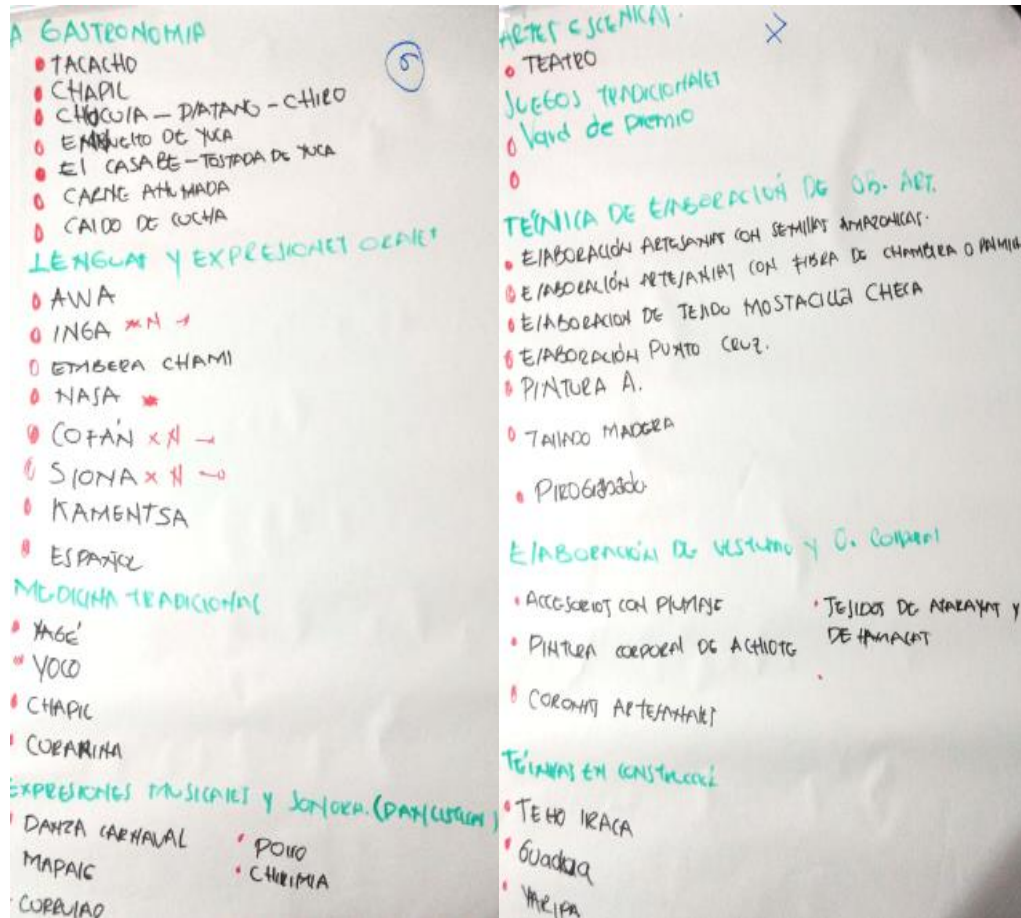 A GASTRONOMIA
TACACHO
CHAPIL
CHUCULA - PLATANO - CHIRO
ENVUELTO DE YUCA
El CASABE - TOSTADA DE YUCA
CARNE AHUMADA
CALDO DE CUCHA
LENGUAS Y EXPRESIONES ORALES
AWA
INGA
EMBERA CHAMI
NASA
COFÁN
SIONA
KAMENTSA
ESPAÑOL
MEDICINA TRADICIONAL
YAGÉ
YOCO
CHAPIL
CURARINA
EXPRESIONES MUSICALES Y SONORA.
DANZA CARNAVAL
MAPALE
CURRULAO
CHIRIMIA
ARTES ESCENICAS.
TEATRO
JUEGOS TRADICIONALES
Vara de premio
TÉCNICA DE ElABORACIÓN DE OB. ART.
ElABORACIÓN ARTESANIAS CON SEMILLAS AMAZONICAS.
ElABORACIÓN ARTESANIAS CON FIBRA DE CHAMBIRA O
ElABORACION DE TEJIDO MOSTACILLA CHECA
ElABORACIÓN PUNTO CRUZ.
PINTURA A.
TAllADO MADERA
PIROGRABADO
ElABORACIÓN DE VESTUARIO Y
ACCESORIOS CON PLUMAJE
PINTURA CORPORAL DE ACHIOTE
CORONAS ARTESANALES
TEJIDOS DE ATARAYAS Y
DE HAMACAS
TÉCNICAS EN
TECHO IRACA
Guadua
YARIPA